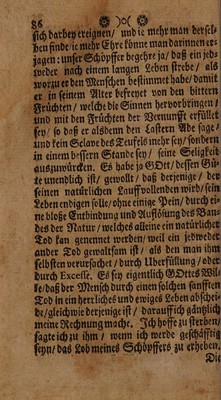 86
sich darbey ereignen / und ie mehr man dersel-
ben finde / ie mehr Ehre könne man darinnen er-
jagen: unser Schöpffer begehre ja / daß ein jed-
weder nach einem langen Leben strebe / als
worzu er den Menschen bestimmet habe / damit
er in seinem Alter befreyet von den bittern
Früchten / welche die Sinnen hervorbringen /
und mit den Früchten der Vernunfft erfüllet
sey / so daß er alsdenn den Lastern Ade sage /
und kein Sclave des Teufels mehr sey / sondern
in einem bessern Stande sey / seine Seligkeit
auszuwürcken. Es habe ja GOtt / dessen Gü-
te unendlich ist / gewollt / daß derjenige / der
seinen natürlichen Lauff vollenden wird / sein
Leben endigen solle / ohne einige Pein / durch ei-
ne bloße Entbindung und Aufflösung des Ban-
des der Natur / welches alleine ein natürlicher
Tod kan genennet werden / weil ein jedweder
ander Tod gewaltsam ist / als den man ihm
selbsten verursachet / durch Uberfüllung / oder
durch Excesse. Es sey eigentlich GOttes Wil-
ke / daß der Mensch durch einen solchen sanfften
Tod in ein herrliches und ewiges Leben abschei-
de / gleichwie derjenige ist / darauff ich gäntzlich
meine Rechnung mache. Ich hoffe zu sterben /
sagte ich zu ihm / wenn ich werde geschäfftig
seyn / das Lob meines Schöpffers zu erheben.
Die